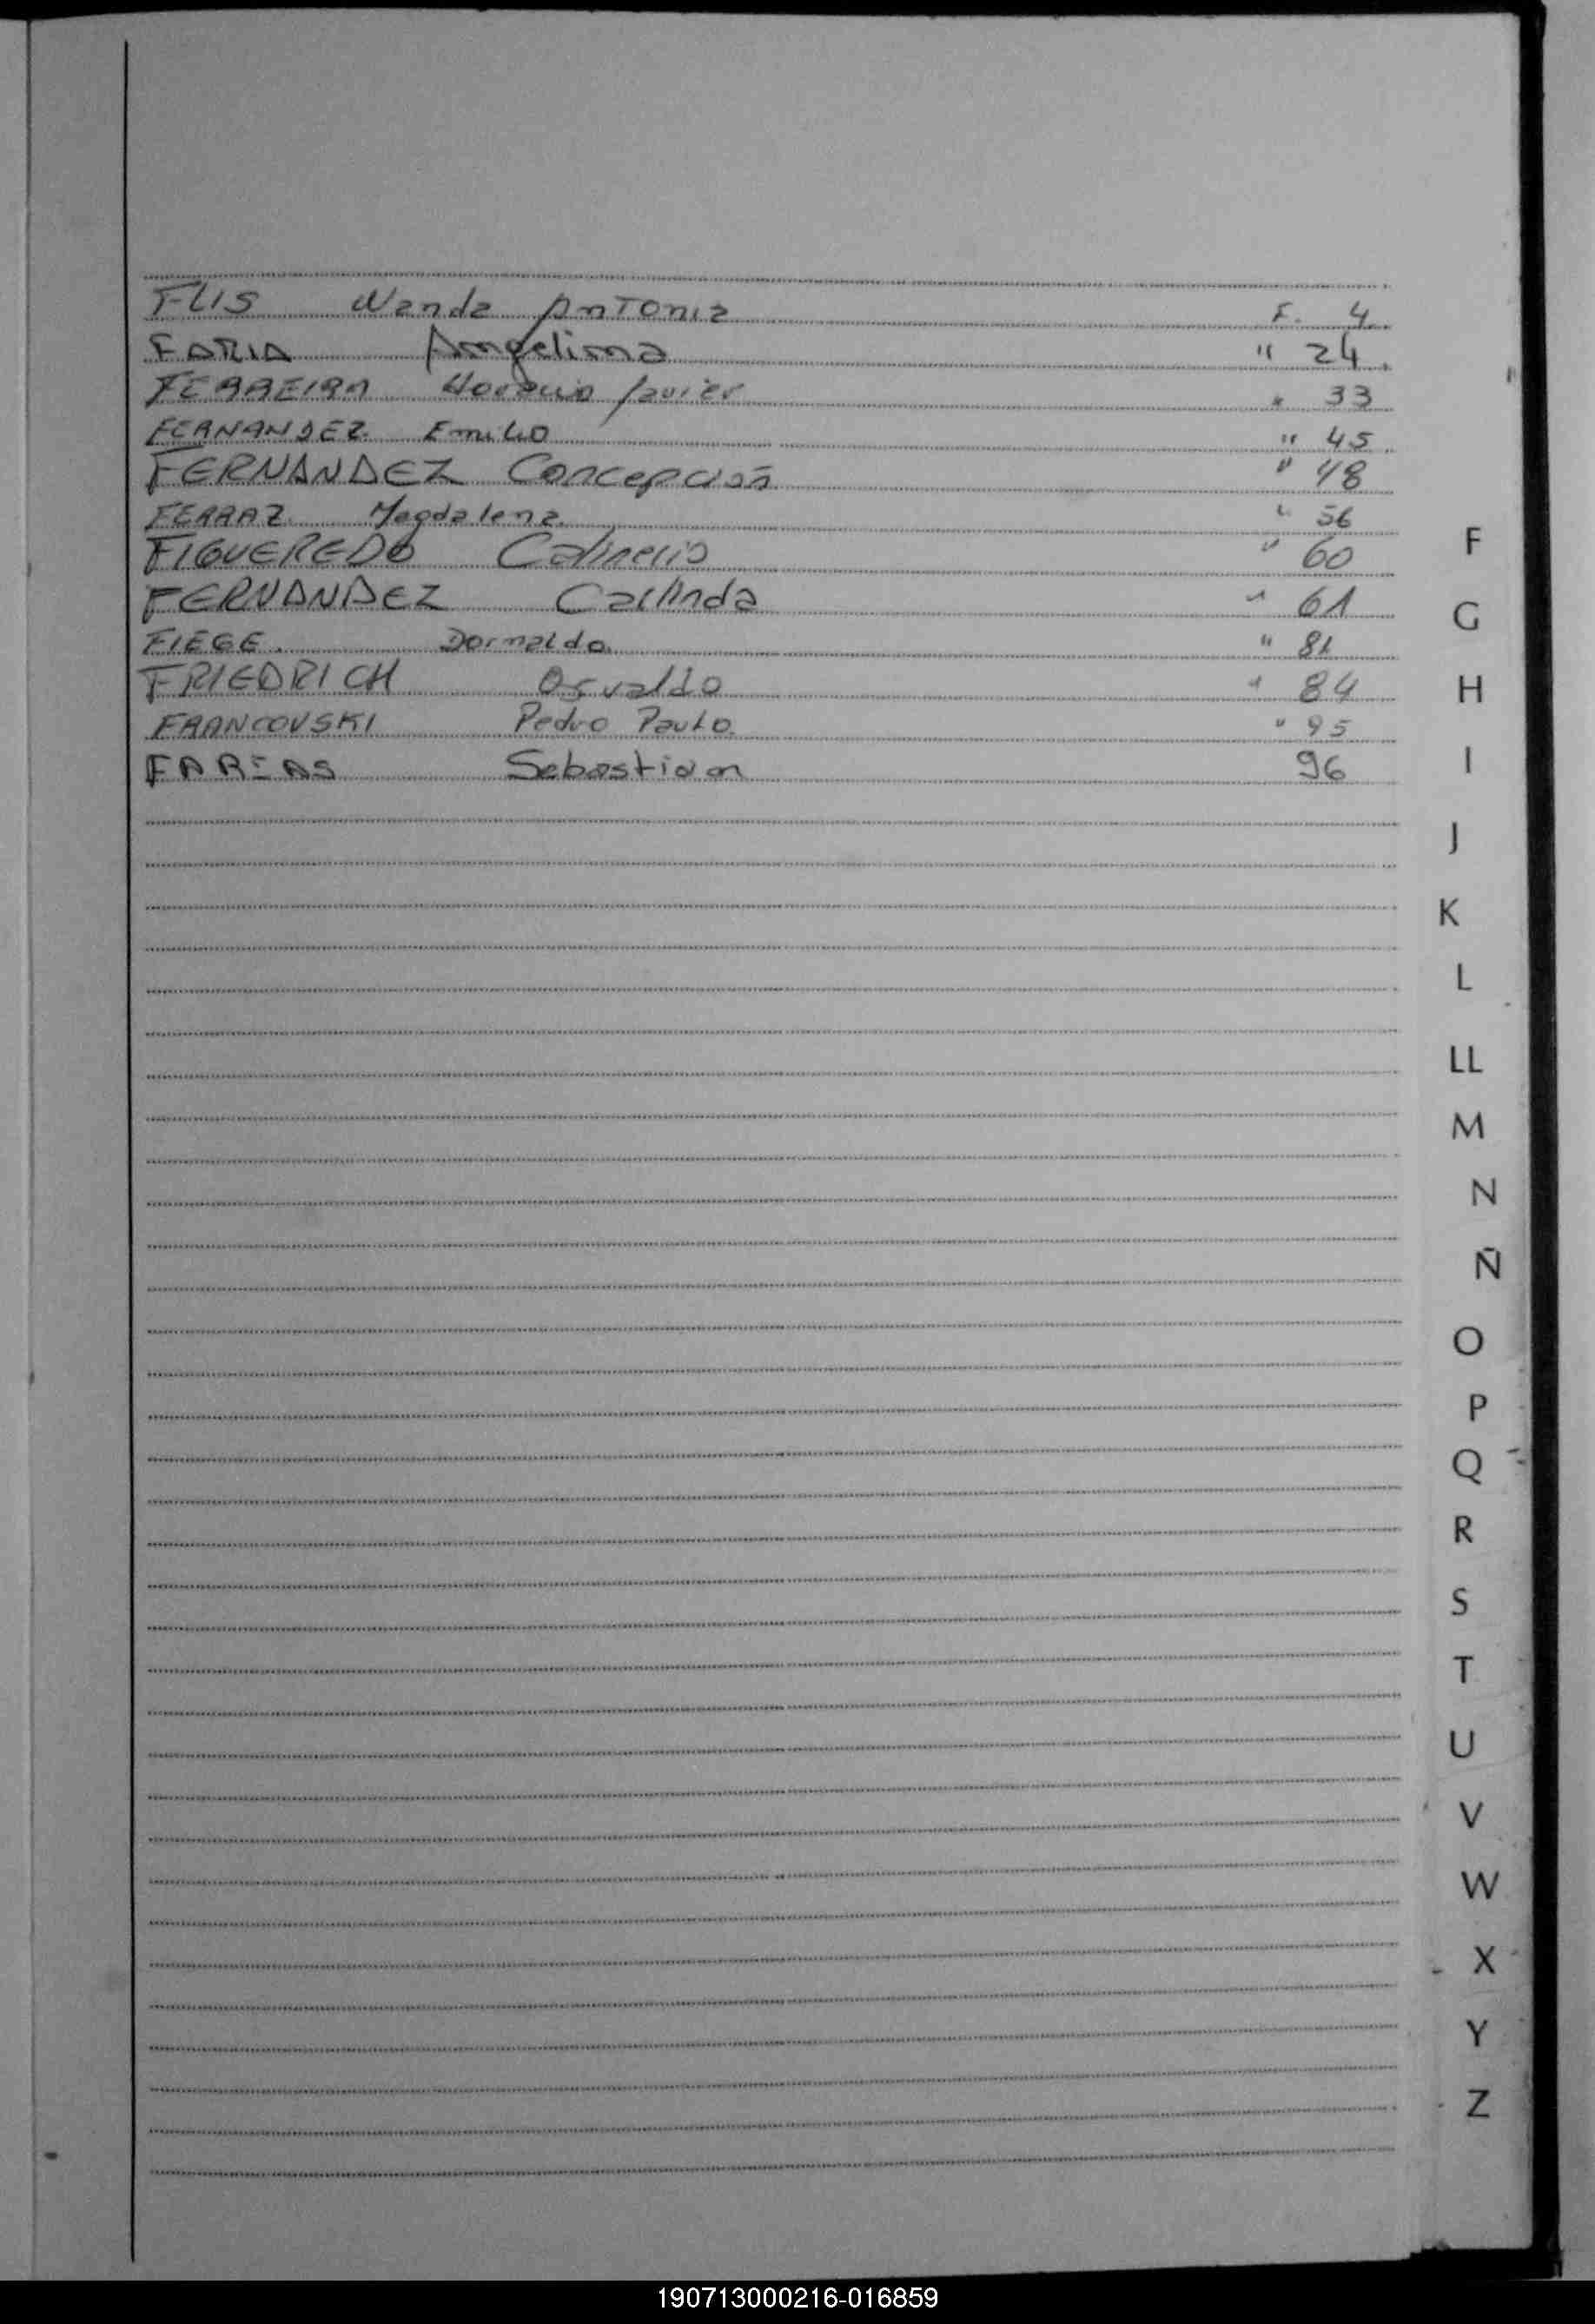 FLIS Wanda Antonia F. 4
FARIA Angelina " 24
FERREIRA Horacio Javier " 33
FERNANDEZ Emilio " 45
FERNANDEZ Concepción " 48
FERRAZ Magdalena " 56
FIGUEREDO " 60
FERNANDEZ Carlinda " 61
FIEGE Dornaldo " 81
FRIEDRICH Osvaldo " 84
FRANCOVSKI Pedro Paulo " 95
FARIAS Sebastian 96
F
G
H
I
J
K
L
LL
M
N
Ñ
O
P
Q
R
S
T
U
V
W
X
Y
Z
190713000216-016859